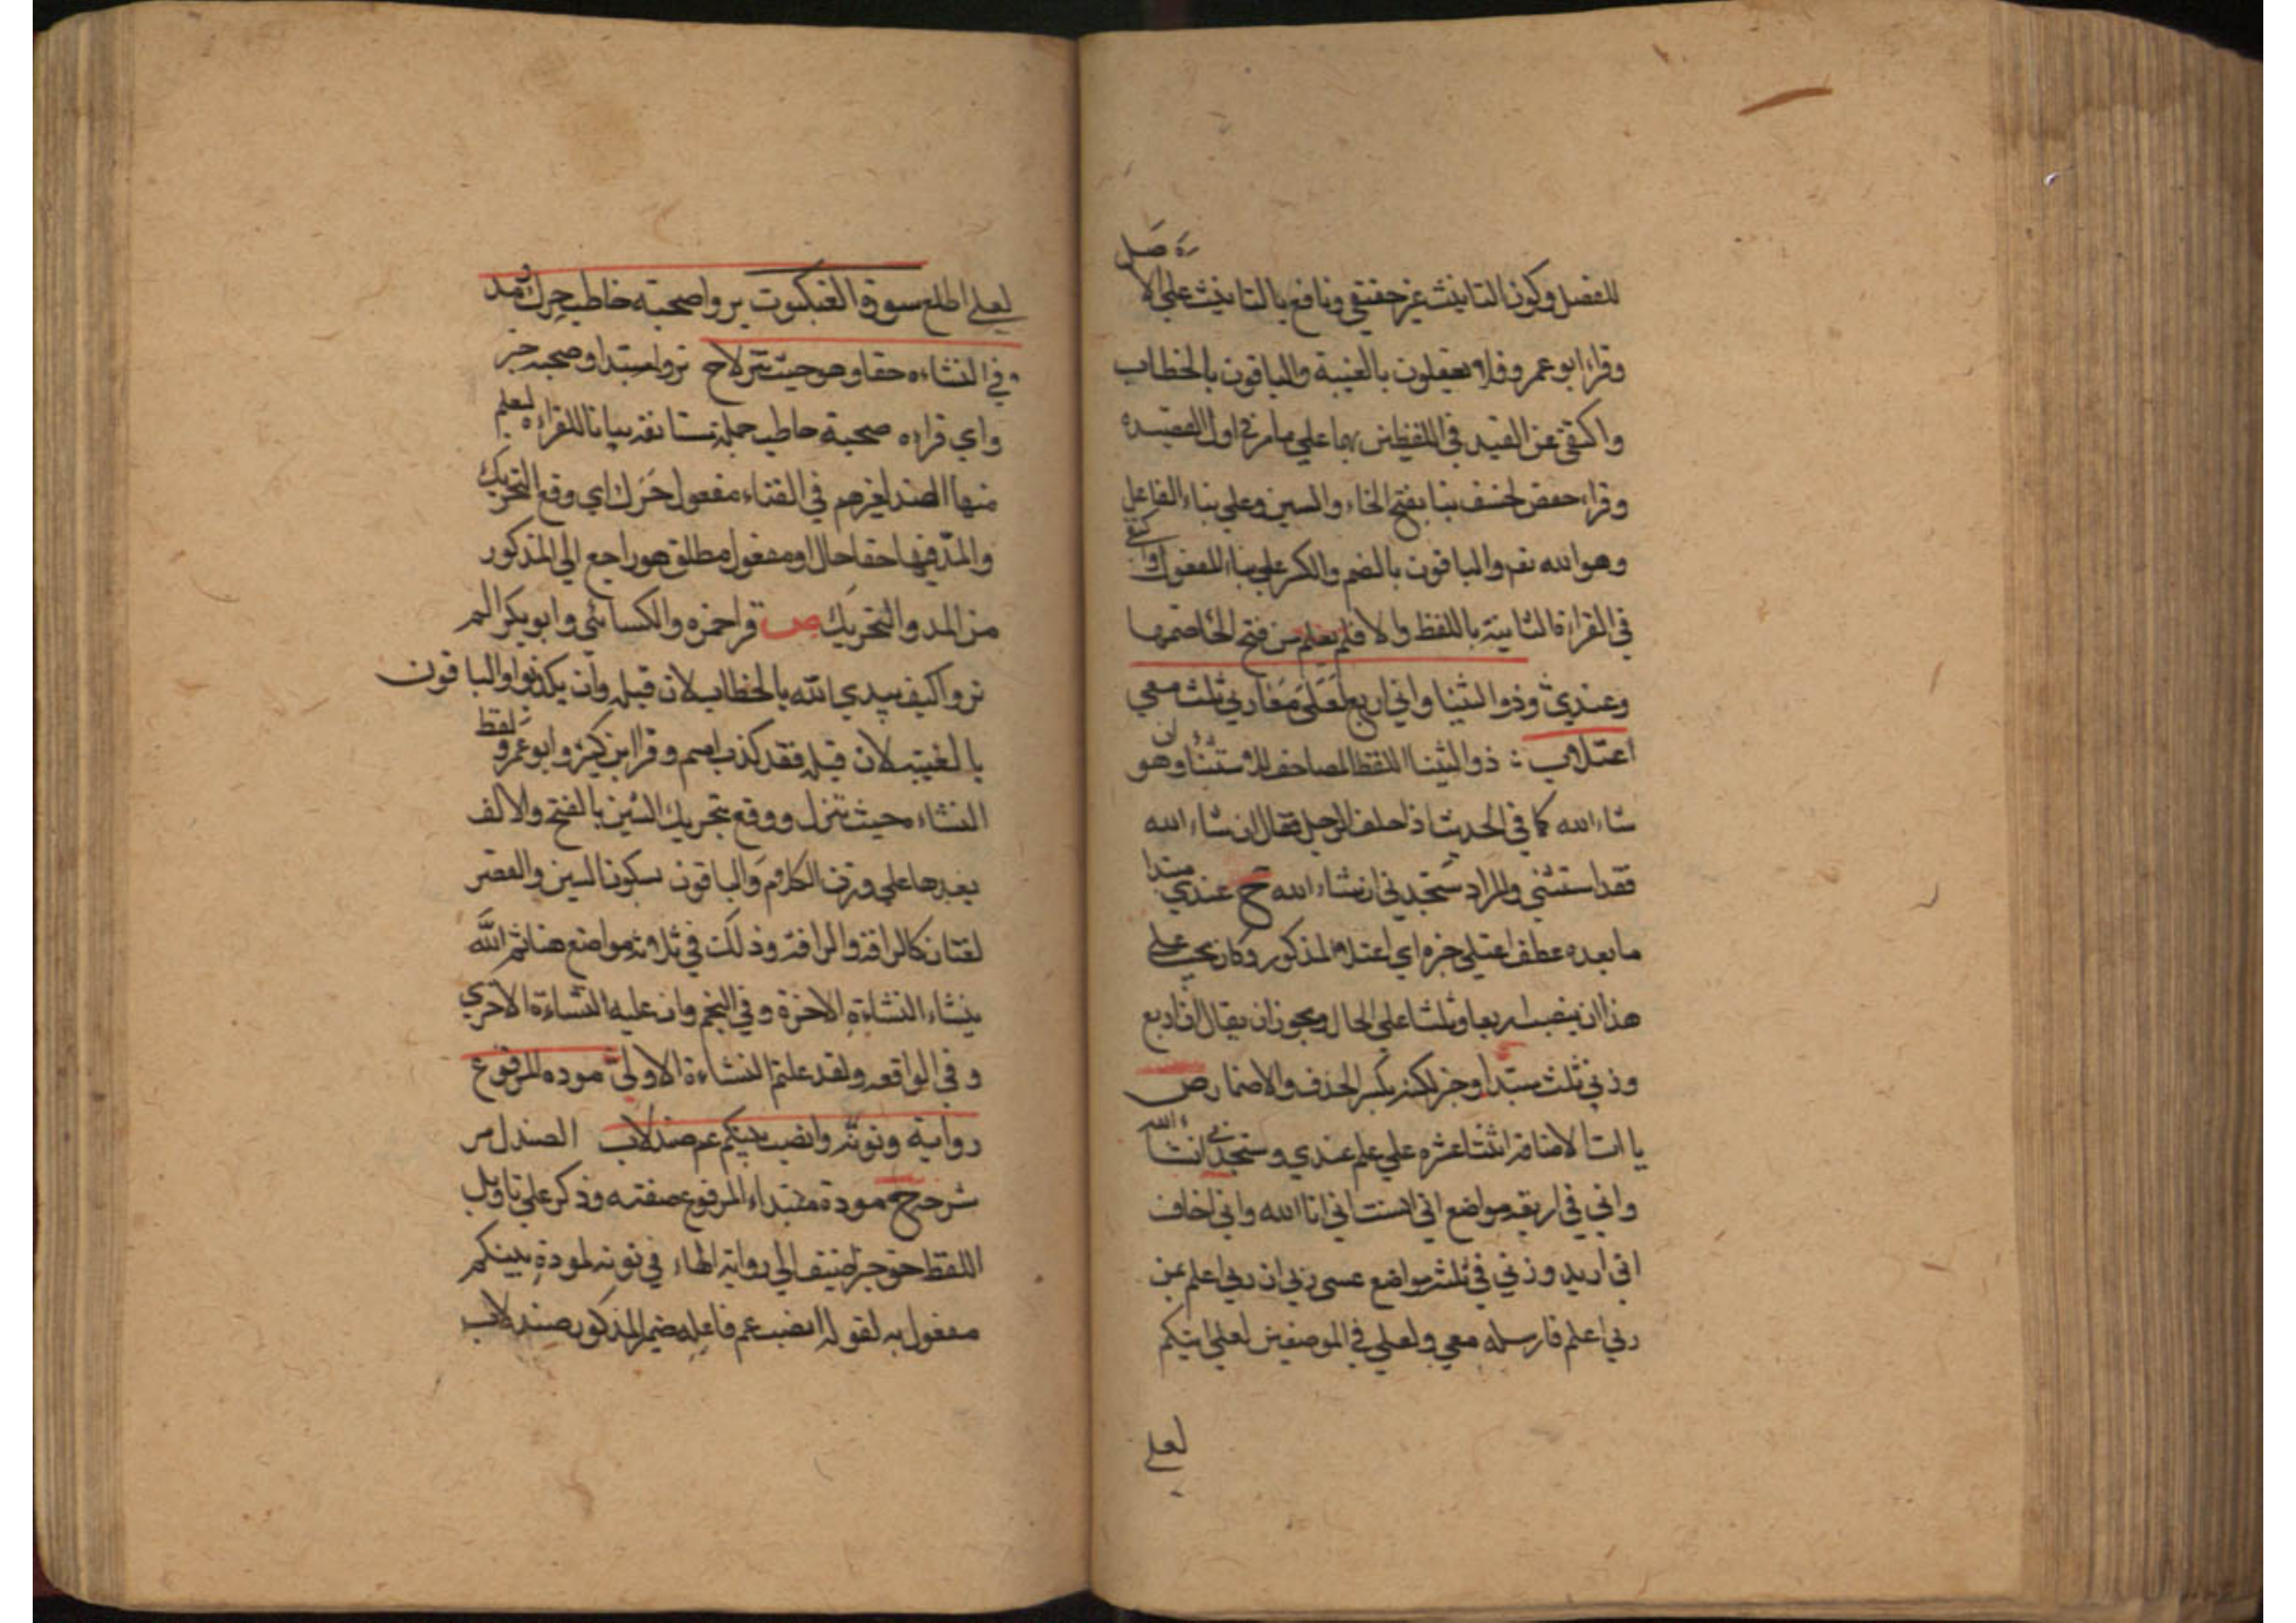 للفصل وكون التانيث غير حقيقي ونافع بالتانيث علي الاصل
وقراء ابو عمرو فلا يعقلون بالغيبة والباقون بالخطاب
واكتفي عن القيد في اللفظين بهما علي ما مر في اول القصيده
وقراء حفص لخسف بنا بفتح الخاء والسين وعلي بناء الفاعل
وهو الله تع والباقون بالضم والكسر علي بناء المفعول واكتفي
في القراءة الثانية باللفظ والا فلم يعلم من فتح الخا ضمها
وعندي وذو الثنيا واني اربع لعلي معا ربي ثلث معي
اعتلا ذو الثنيا اللفظ المصاحف للاستثنا وهو ان
شاء الله كما في الحديث اذا حلف الرجل فقال ان شاء الله
فقد استثني والمراد ستجدني ان شاء الله ح عندي مبتدا
ما بعده عطف اعتلي خبره اي اعتلا المذكور وكان يجب علي
هذا ان ينصب اربعا وثلثا علي الحال ويجوز ان يقال اني اربع
وربي ثلث مبتدا وخبر لكن يكسر الحذف والاضمار ص
ياات الاضافة اثنتا عشره علي علم عندي وستجدني ان شاء الله
واني في اربعة مواضع اني انست اني انا الله واني اخاف
اني اريد وربي في ثلث مواضع عسي ربي ان ربي اعلم من
ربي اعلم فارسله معي ولعلي في الموضعين لعلي اتيكم
لعلي
لعلي اطلع سورة العنكبوت يروا صحبته خاطب حرك ومد
في النشاءه حقا وهو حيث تنزلا ح تروا مبتدا وصحبه خبر
واي قراءه صحبة خاطب جملة مستانفه بيانا للقراءه ليعلم
منها الضد لغيرهم في النشاء مفعول حرك اي وقع التحريك
والمد فيها حقا حال او مفعول مطلق هو راجع الي المذكور
من المد والتحريك ص قرا حمزه والكسائي وابو بكر الم
تروا كيف يبدي الله بالخطاب لان قبله وان يكذبوا والباقون
بالغيبة لان قبله فقد كذب امم وقرا ابن كثير وابو عمرو لفظ
النشاء حيث تنزل ووقع بتحريك الشين بالفتح والالف
بعدها علي وزن الكلام والباقون بسكون الشين والقصر
لغتان كالرافة والرافة وذلك في ثلاثة مواضع هنا ثم الله
ينشاء النشاءة الاخرة وفي النجم وان عليه النشاءة الاخري
وفي الواقعه ولقد علمتم النشاءة الاولي موده المرفوع
رواية ونونه وانصب بينكم عم صندلا الصندل مر
شرحه ح مودة مبتداء المرفوع صفته وذكر علي تاويل
اللفظ حق خبر اضيف الي رواية الهاء في نونه لمودة بينكم
مفعول به لقوله انصب عم فاعله ضمير المذكور صندلا